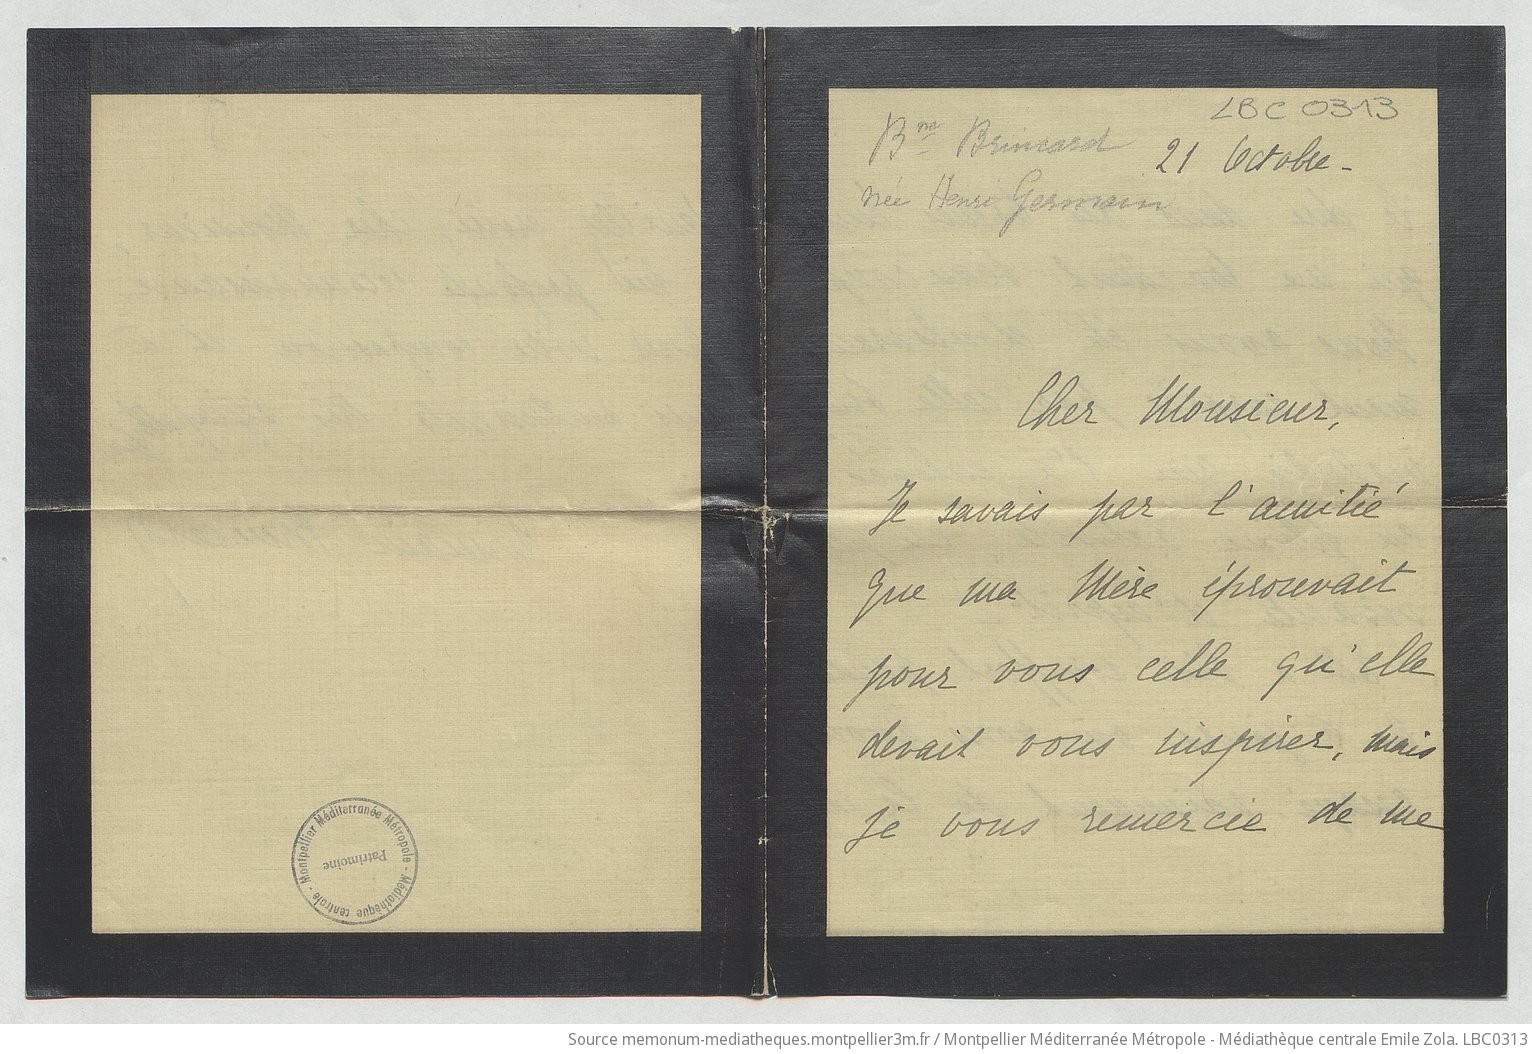 LBC 0313
Bne Brincard
21 Octobre -
née Henri Germain
Cher Monsieur,
Je savais par l'amitié
que ma Mère éprouvait
pour vous celle qu'elle
devait vous inspirer, mais
je vous remercie de me
Montpellier Méditerranée Métropole - Médiathèque centrale -
Patrimoine
Source memonum-mediatheques.montpellier3m.fr / Montpellier Méditerranée Métropole - Médiathèque centrale Emile Zola. LBC0313